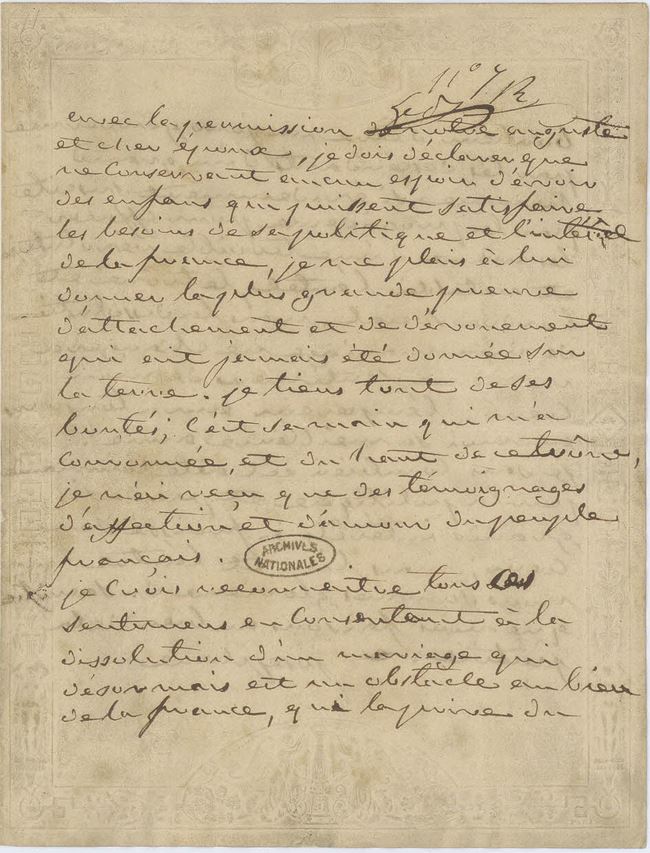 avec la permission de notre auguste
et cher époux, je dois déclarer que
ne conservant aucun espoir d'avoir
des enfans qui puissent satisfaire
les besoins de sa politique et l'intérêt
de la france, je me plais à lui
donner la plus grande preuve
d'attachement et de dévouement
qui ait jamais été donnée sur
la terre. je tiens tout de ses
bontés; c'est sa main qui m'a
couronnée, et du haut de ce trône,
je n'ai reçu que des témoignages
d'affection et d'amour du peuple
français.
ARCHIVES
NATIONALES
je crois reconnaitre tous ces
sentimens en consentant à la
dissolution d'un mariage qui
désormais est un obstacle au bien
de la france, qui la prive du